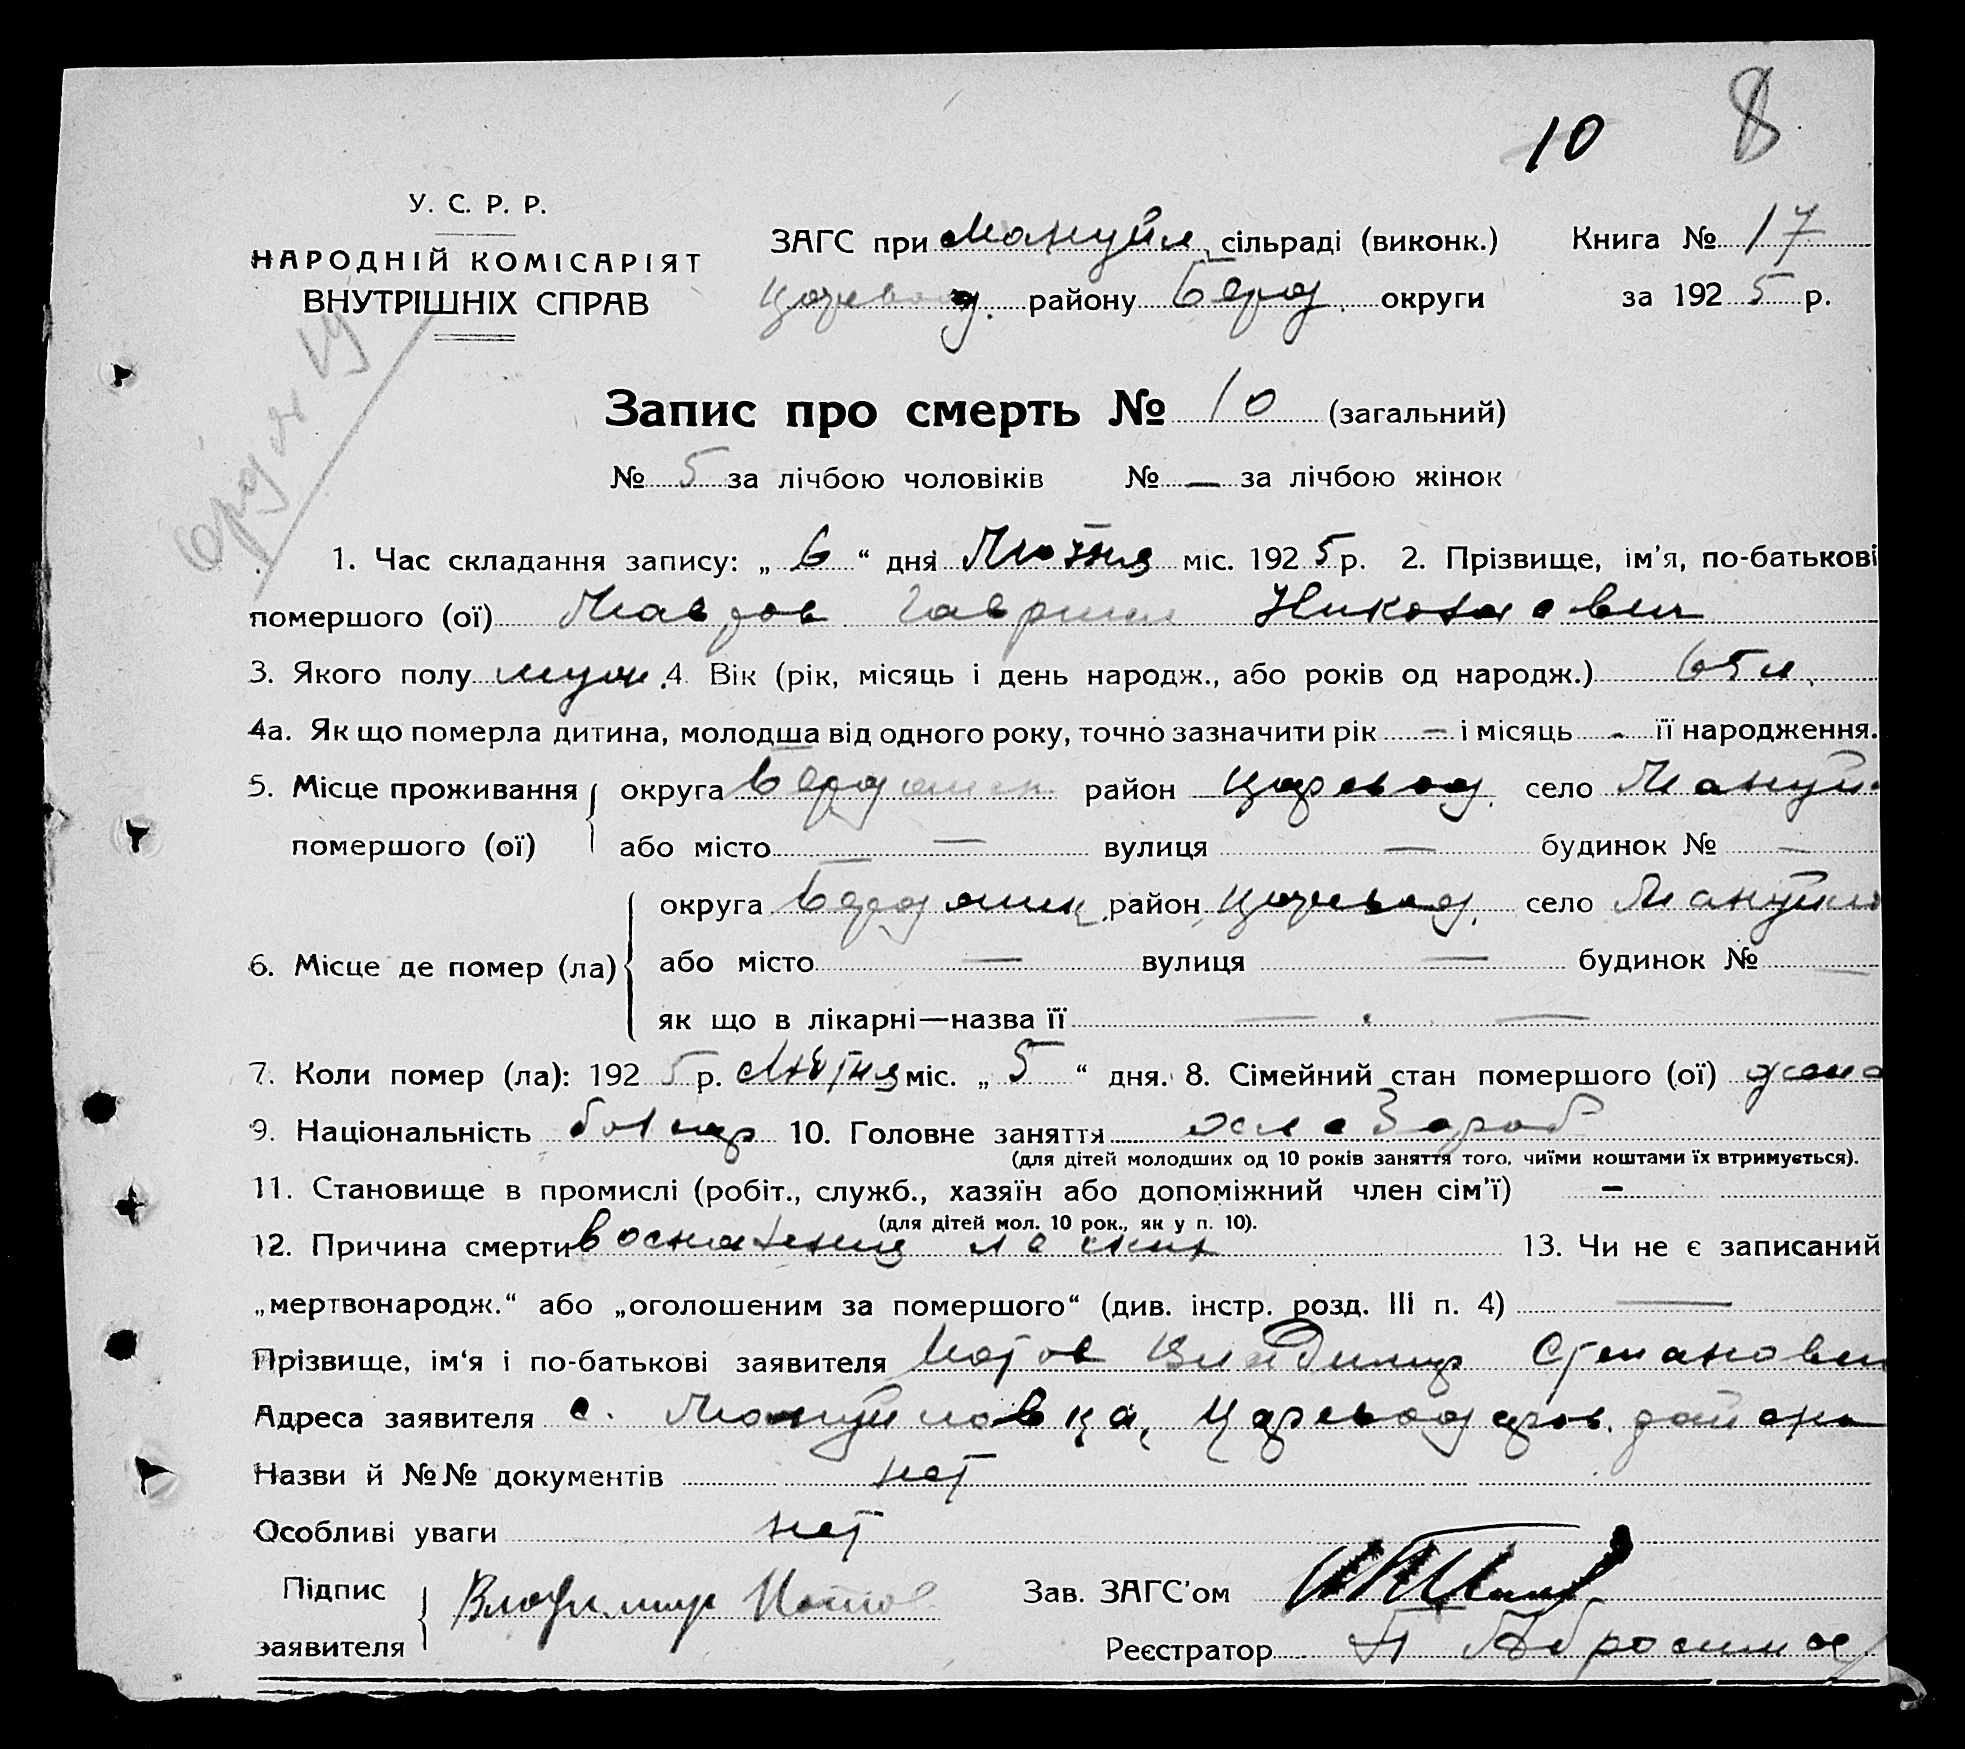 10 8
У. С. Р. Р.
НАРОДНІЙ КОМІСАРІЯТ
ВНУТРІШНІХ СПРАВ
ЗАГС при Мануйл. сільраді (виконк.) Книга № 17
Царевод. району Берд. округи за 1925 р.
Запис про смерть № 10 (загальний)
№ 5 за лічбою чоловіків № — за лічбою жінок
1. Час складання запису: „ 6 “ дня Лютня міс. 1925 р. 2. Прізвище, ім’я, по-батькові
помершого (ої) Мавров Гавриил Николаевич
3. Якого полу муж. 4. Вік (рік, місяць і день народж., або років од народж.) 65 л.
4а. Як що померла дитина, молодша від одного року, точно зазначити рік — і місяць - її народження.
5. Місце проживання округа Бердянск. район Царевод. село Мануйл
помершого (ої) або місто — вулиця — будинок № —
округа Бердянск. район Царевод. село Мануйло
6. Місце де помер (ла) або місто — вулиця — будинок № —
як що в лікарні—назва її — —
7. Коли помер (ла): 1925 р. Лютня міс. „ 5 “ дня. 8. Сімейний стан помершого (ої)
9. Національність болгар 10. Головне заняття хлебороб
(для дітей молодших од 10 років заняття того, чиїми коштами їх втримується).
11. Становище в промислі (робіт., служб., хазяїн або допоміжний член сім’ї) —
(для дітей мол. 10 рок., як у п. 10).
12. Причина смерти воспаление легких 13. Чи не є записаний
„мертвонародж.“ або „оголошеним за помершого“ (див. інстр. розд. III п. 4) —
Прізвище, ім‘я і по-батькові заявителя Владимир Степанович
Адреса заявителя с. Мануйловка, Царевод
Назви й №№ документів нет
Особливі уваги нет
Підпис Владимир Зав. ЗАГС’ом
заявителя Реєстратор П Абросимов